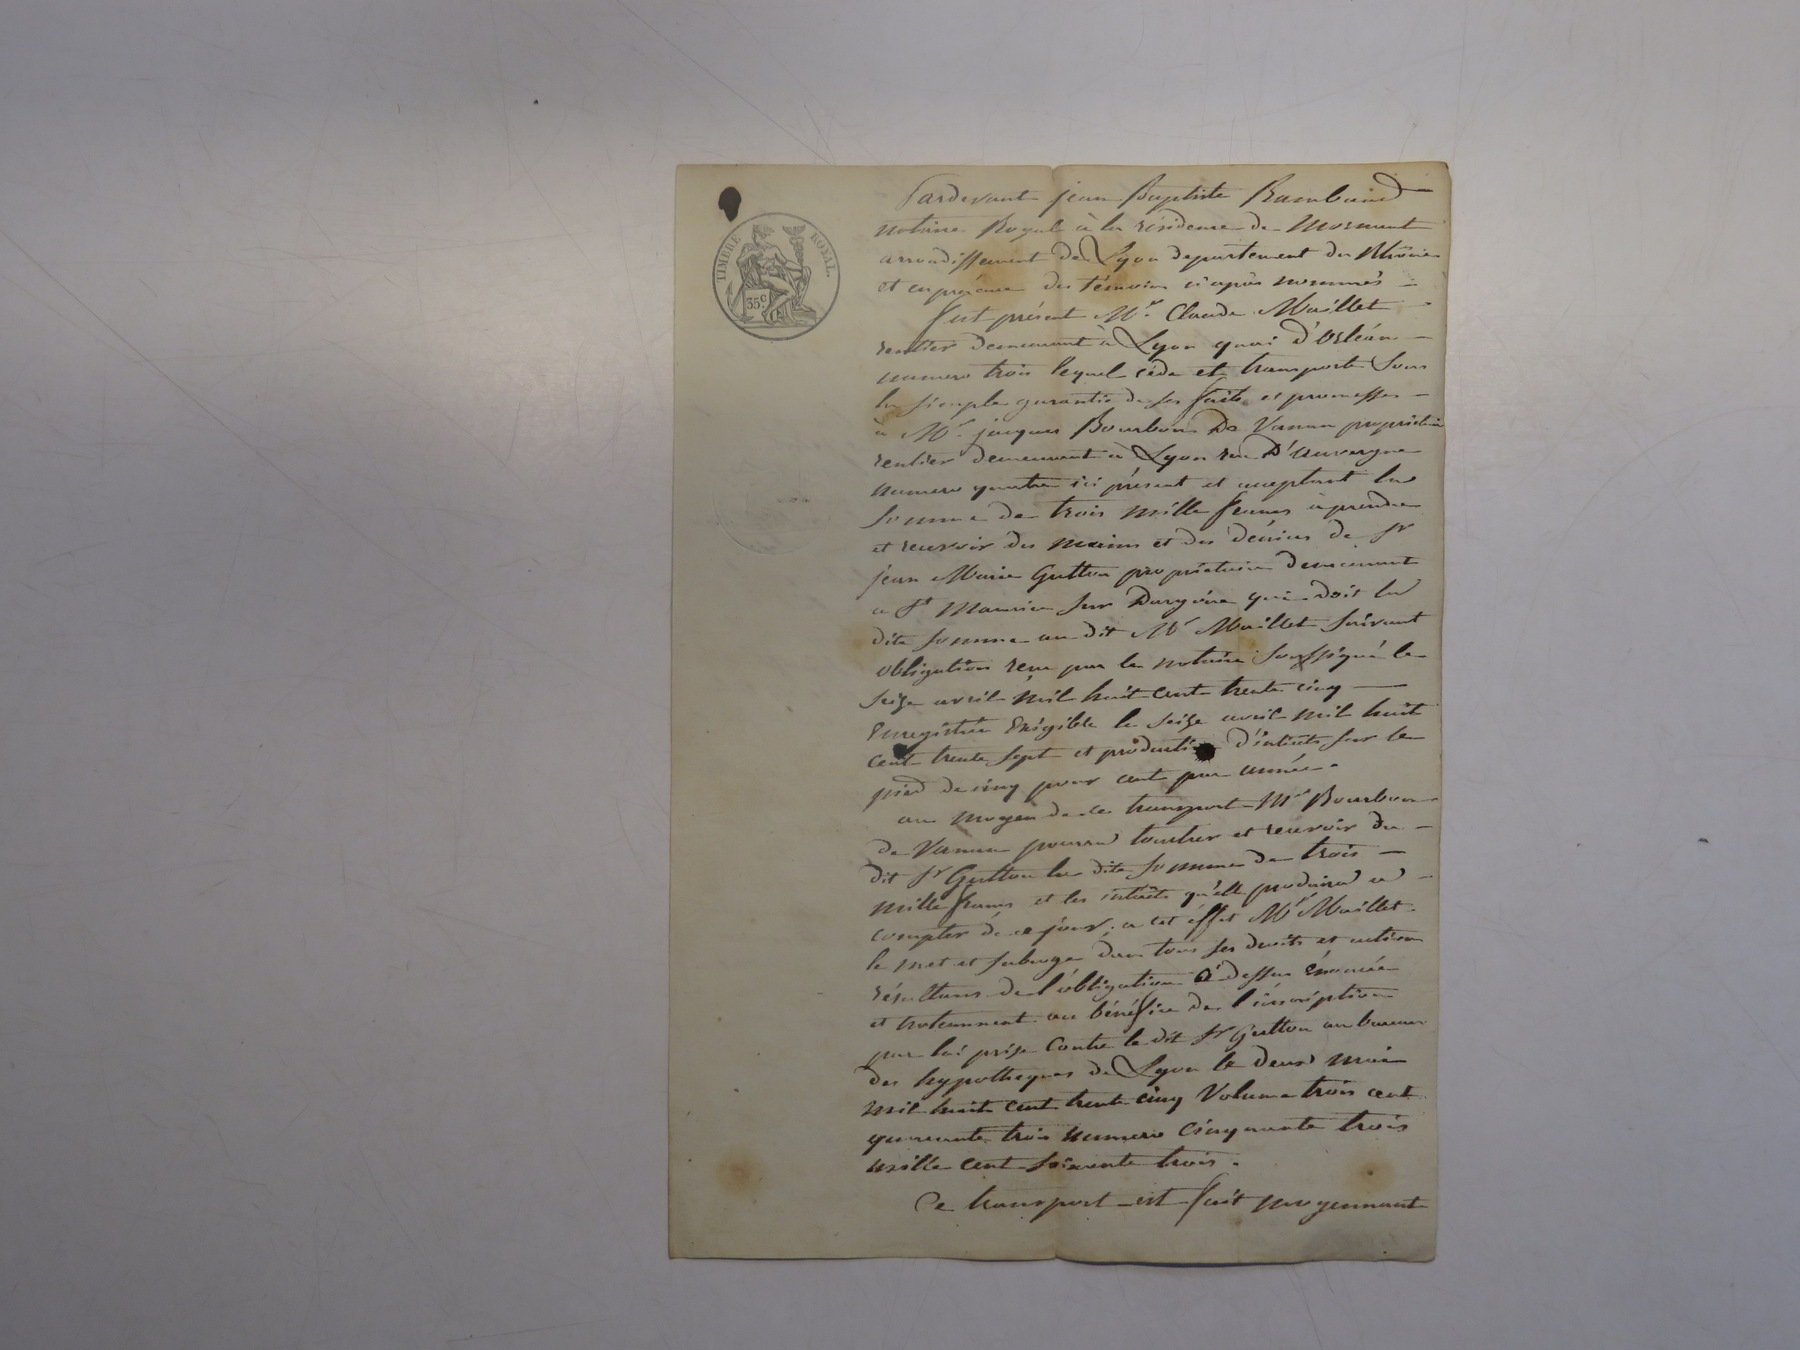 TIMBRE ROYAL.
35c
Pardevant jean Baptiste Rambaud
notaire Royal à la résidence de Mornant
arrondissement de Lyon departement du Rhône
et en présence des témoins ci après nommés
fut présent Mr. Claude Maillet
rentier demeurant à Lyon quai d'Orléans
numero trois lequel cède et transporte Sous
la simple garantie de ses faits et promesses
à Mr. jacques Bourbon De Vanan propriétaire
rentier demeurant à Lyon rue D'auvergne
numero quatre ici présent et acceptant la
Somme de trois mille francs à prendre
et recevoir des mains et des déniers de Sr
jean Marie Gutton propriétaire demeurant
a St Maurice Sur Dargoire qui doit la
dite somme au dit Mr Maillet Suivant
obligation reçue par le notaire Soussigné le
Seize avril mil huit cent trente cinq
Enregistrée Exigible le Seize avril mil huit
cent trente sept et productive d'intérêts sur le
pied de cinq pour cent par année.
au moyen de ce transport Mr Bourbon
de Vanan pourra toucher et recevoir du
dit Sr Gutton la dite somme de trois
mille francs et les intérêts qu'elle produira a
compter de ce jour, a cet éffet Mr Maillet
le met et subroge dans tous ses droits et actions
résultans de l'obligation Ci dessus énoncée
et notamment au bénéfice de l'inscription
par lui prise Contre le dit Sr Gutton au bureau
des hypotheques de Lyon le deux mai
mil huit cent trente cinq Volume trois cent
quarante trois numero Cinquante trois
mille cent soixante trois.
Ce transport est fait moyennant